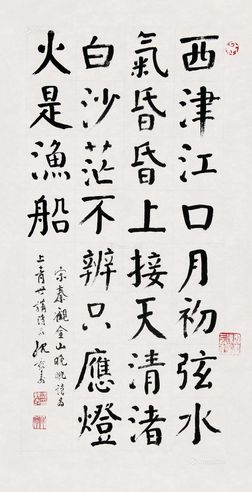 西津江口月初弦水
氣昏昏上接天清渚
白沙茫不辨只應燈
火是漁船
宋秦觀金山晚眺詩為
上青世講 沈尹默